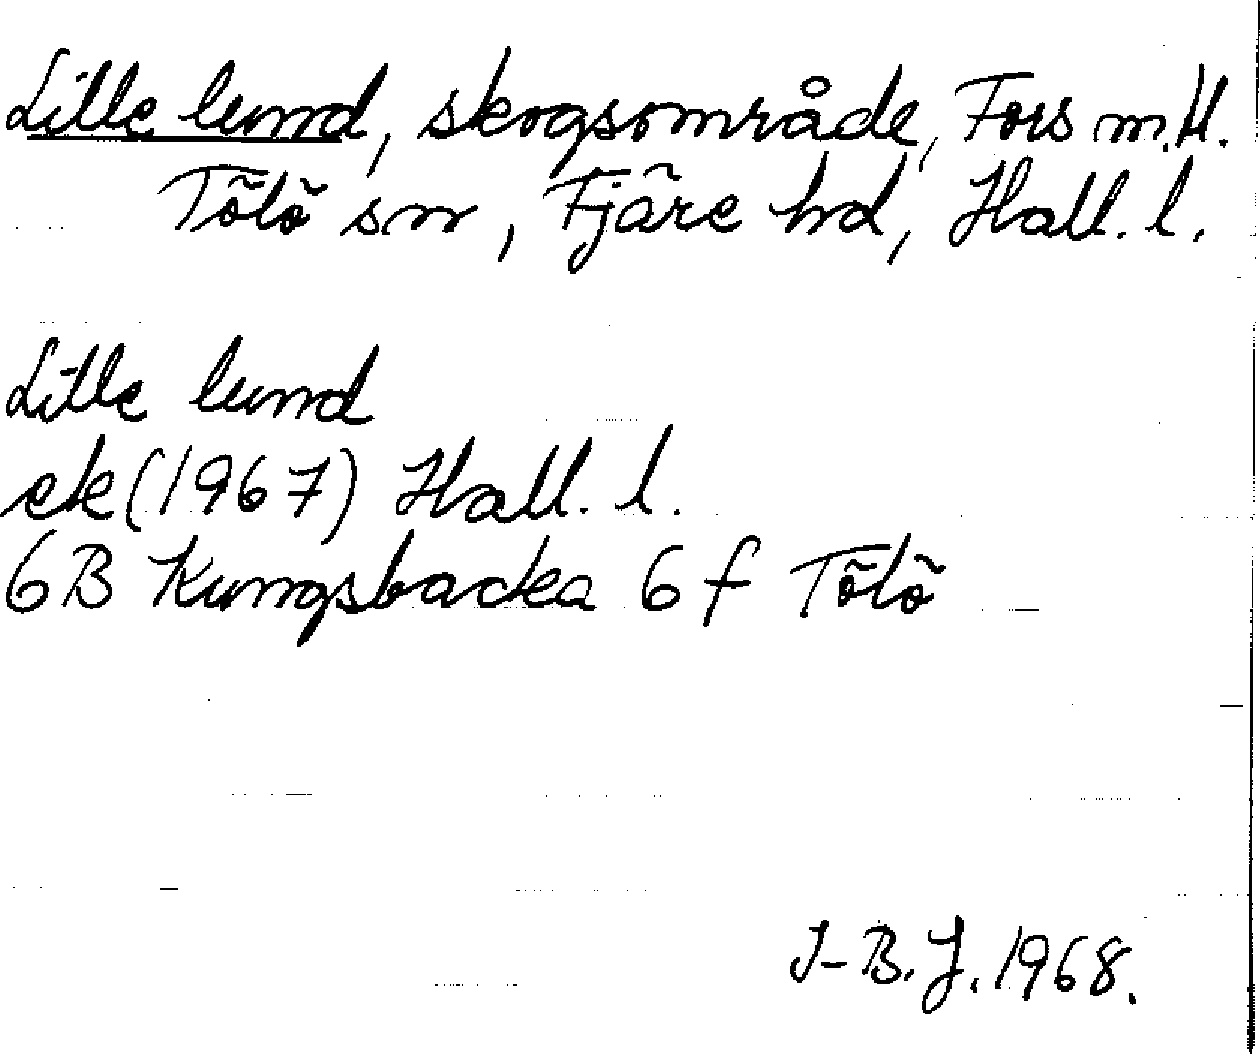 Lille lund, skogsområde, Fors m.fl.
Tölö sn, Fjäre hd, Hall. l.
Lille lund
ek (1967) Hall. l.
6B Kungsbacka 6 f Tölö
I-B. J. 1968.